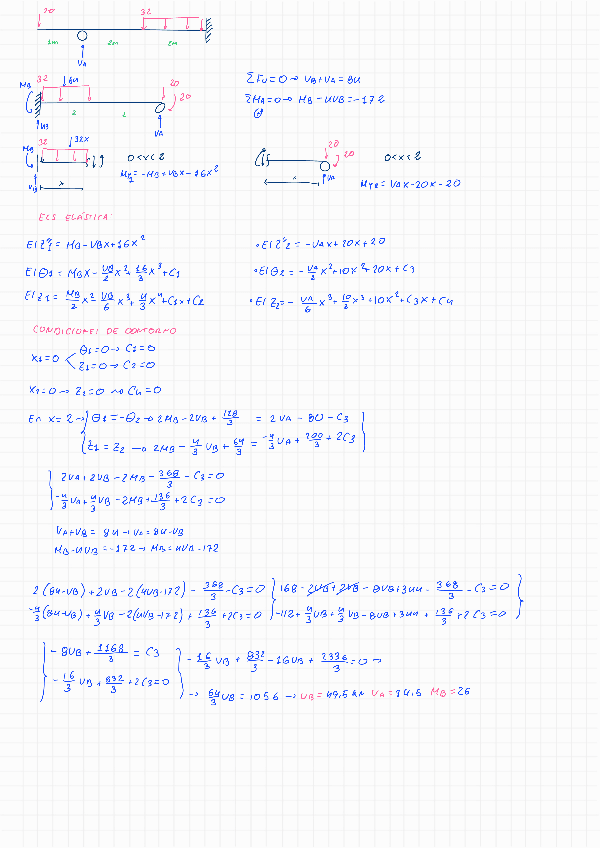 20
32
1m 2m 2m
VA
MB 32 64 20
20
ΣFv=0 → VB+VA=84
ΣMA=0 → MB-4VB=-172
2 2
VB VA
MB 32 32x
0<x<2
M1=-MB+VBx-16x²
VB x
20
20
0<x<2
x VA
M2=VAx-20x-20
ECS ELÁSTICA:
EIZ1''=MB-VBx+16x²
EIθ1=MBx-VB/2x²+16/3x³+C1
EIZ1=MB/2x²-VB/6x³+4/3x⁴+C1x+C2
·EIZ2''=-VAx+20x+20
·EIθ2=-VA/2x²+10x²+20x+C3
·EIZ2=-VA/6x³+10/3x³+10x²+C3x+C4
CONDICIONES DE CONTORNO
x1=0 < θ1=0→C1=0
Z1=0→C2=0
x2=0→Z2=0→C4=0
En x=2→ { θ1=-θ2→2MB-2VB+128/3=2VA-80-C3
Z1=Z2→2MB-4/3VB+64/3=-4/3VA+200/3+2C3 }
{ 2VA+2VB-2MB-368/3-C3=0
-4/3VA+4/3VB-2MB+136/3+2C3=0
VA+VB=84→VA=84-VB
MB-4VB=-172→MB=4VB-172
2(84-VB)+2VB-2(4VB-172)-368/3-C3=0 } 168-2VB+2VB-8VB+344-368/3-C3=0 }
-4/3(84-VB)+4/3VB-2(4VB-172)+136/3+2C3=0 } -112+4/3VB+4/3VB-8VB+344+136/3+2C3=0 }
{ -8VB+1168/3=C3
-16/3VB+832/3+2C3=0 } -16/3VB+832/3-16VB+2336/3=0→
→64/3VB=1056→VB=49,5kN VA=34,5 MB=26